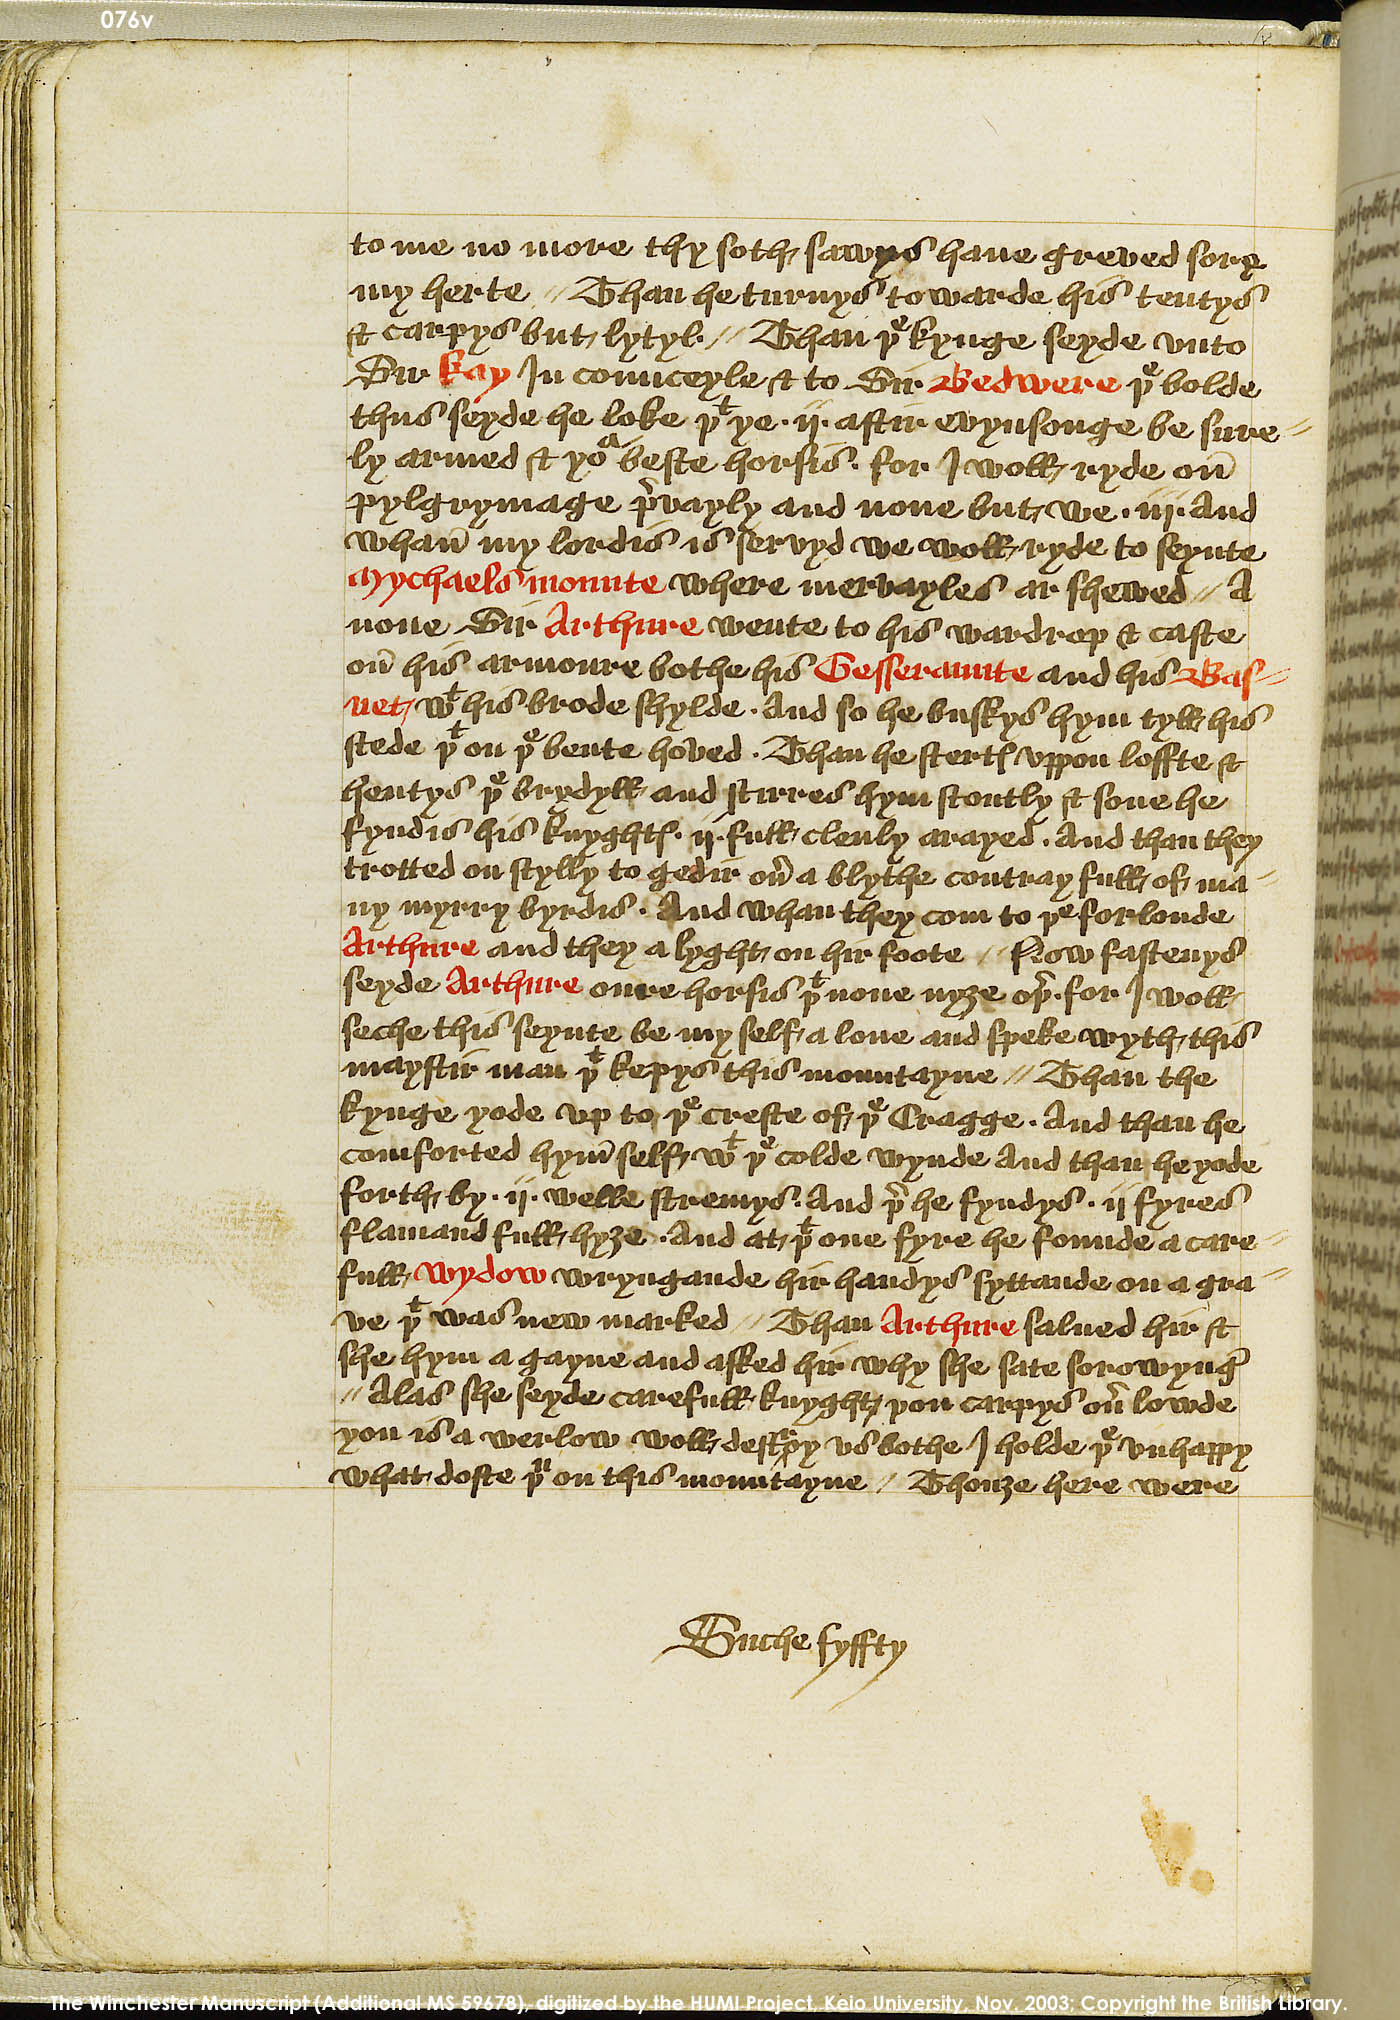 076v
to me no more thy soth sawys haue greved sore
my herte // Than he turnys towarde his tentys
& carpys but lytyl // Than þe kynge seyde vnto
Sir Kay In counceyle & to Sir Bedwere þe bolde
thus seyde he loke þt ye · ij · aftir evynsonge be sure=
ly armed & yor beste horsis · for I woll ryde on
pylgrymage pͥvayly and none but we · iij · And
whan my lordis is servyd we woll ryde to seynte
Mychaels mounte where mervayles ar shewed // A
none Sir Arthure wente to his wardrop & caste
on his armoure bothe his Gesseraunte and his Bas=
net wt his brode shylde · And so he buskys hym tyll his
stede þt on þe bente hoved · Than he stertꝭ vppon loffte &
hentys þe brydyll and stirres hym stoutly & sone he
fyndis his knyghtꝭ · ij · full clenly arayed · And than they
trotted on stylly to gedir oũ a blythe contray full of ma=
ny myrry byrdis · And whan they com to þe forlonde
Arthure and they a lyght on hir foote // Now fastenys
seyde Arthure oure horsis þt none nyȝe oþ̉ · for I woll
seche this seynte be my self a lone and speke wyth this
maystir man þt kepys this mountayne // Than the
kynge yode vp to þe creste of þe Cragge · And than he
comforted hym self wt þe colde wynde And than he yode
forth by · ij · welle stremys · And þ̉ he fyndys · ij fyres
flamand full hyȝe · And at þt one fyre he founde a care=
full wydow wryngande hir handys syttande on a gra=
ve þt was new marked // Than Arthure salued hir &
she hym a gayne and asked hir why she sate sorowyng̉
// Alas she seyde carefull knyght þou carpys oũ lowde
yon is a werlow woll destroy vs bothe I holde þe vnhappy
what doste þu on this mountayne // Thouȝe here were
Suche fyffty
The Winchester Manuscript (Additional MS 59678), digitized by the HUMI Project, Keio University, Nov. 2003; Copyright the British Library.